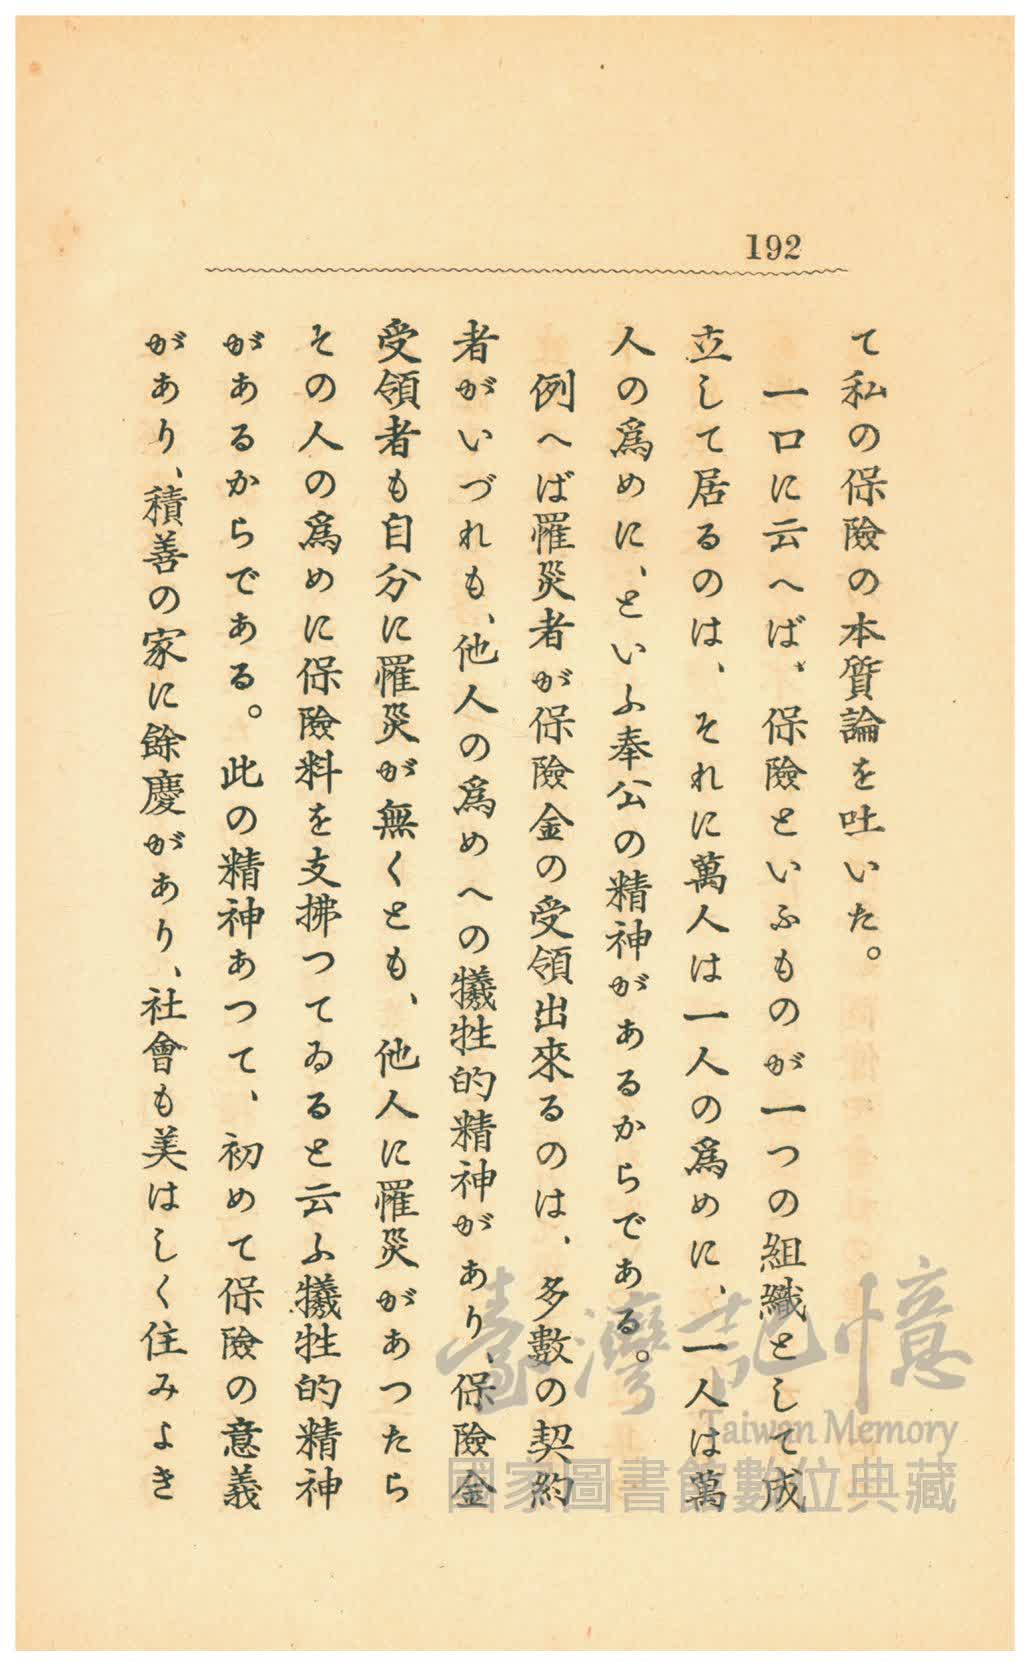 192
て私の保險の本質論を吐いた。
一口に云へば、保險といふものが一つの組織として成
立して居るのは、それに萬人は一人の爲めに、一人は萬
人の爲めに、といふ奉公の精神があるからである。
例へば罹災者が保險金の受領出來るのは、多數の契約
者がいづれも、他人の爲めへの犧牲的精神があり、保險金
受領者も自分に罹災が無くとも、他人に罹災があつたら
その人の爲めに保險料を支拂つてゐると云ふ犧牲的精神
があるからである。此の精神あつて、初めて保險の意義
があり、積善の家に餘慶があり、社會も美はしく住みよき
臺灣記憶
Taiwan Memory
國家圖書館數位典藏